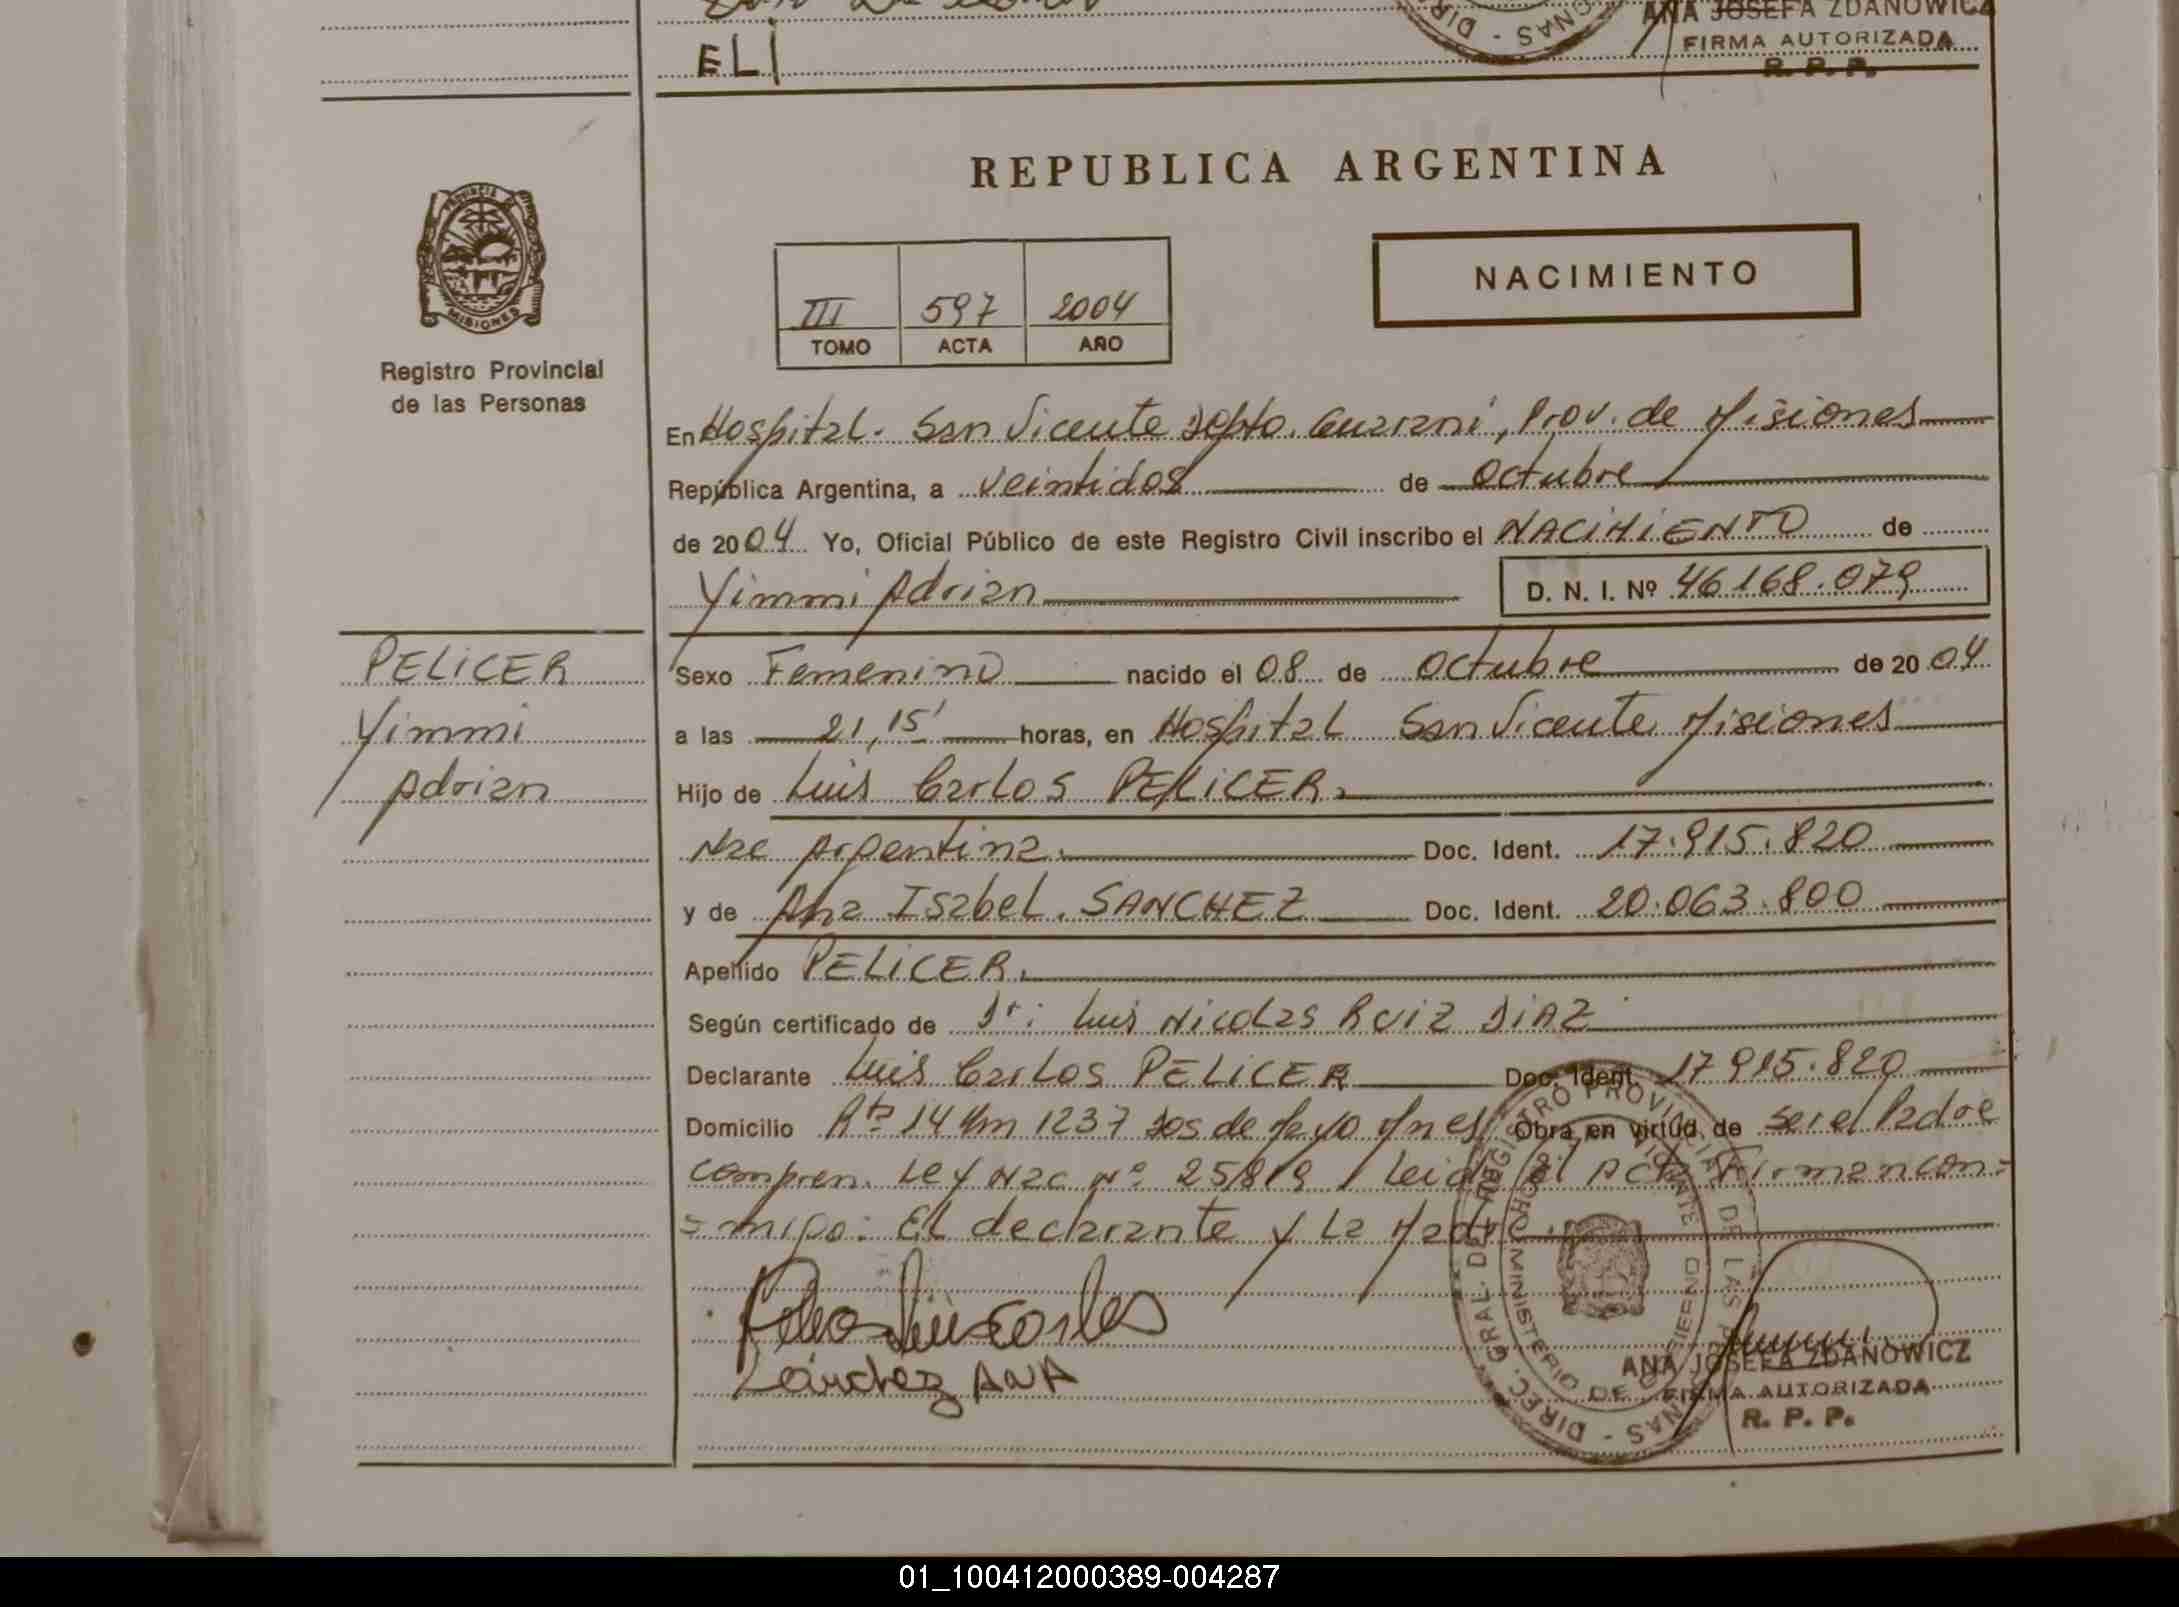 ELI
ANA JOSEFA ZDANOWICZ
FIRMA AUTORIZADA
R. P. P.
PROVINCIA DE
MISIONES
Registro Provincial
de las Personas
REPUBLICA ARGENTINA
NACIMIENTO
III 597 2004
TOMO ACTA AÑO
En Hospital. San Vicente Dpto. Guarani, Prov. de Misiones
República Argentina, a veintidos de Octubre
de 2004 Yo, Oficial Público de este Registro Civil inscribo el NACIMIENTO de
Yimmi Adrian D. N. I. Nº 46168.079
PELICER
Yimmi
Adrian
Sexo Femenino nacido el 08 de Octubre de 2004
a las 21,15' horas, en Hospital San Vicente Misiones
Hijo de Luis Carlos PELICER.
Nac Argentina. Doc. Ident. 17.915.820
y de Ana Isabel. SANCHEZ Doc. Ident. 20.063.800
Apellido PELICER.
Según certificado de Dr: Luis Nicolas RUIZ DIAZ
Declarante Luis Carlos PELICER Doc. Ident. 17915.820
Domicilio Rta 14 Km 1237 Dos de Mayo Mnes/ Obra en virtud de ser el Padre
compren. Ley Nac Nº 25819 / Leida el Acta Firman con=
=migo: El declarante y La Madre.
Luis Carlos
Sánchez ANA
DIREC. GRAL. DEL REGISTRO PROVINCIAL DE LAS PERSONAS
MINISTERIO DE GOBIERNO
ANA JOSEFA ZDANOWICZ
FIRMA AUTORIZADA
R. P. P.
01_100412000389-004287